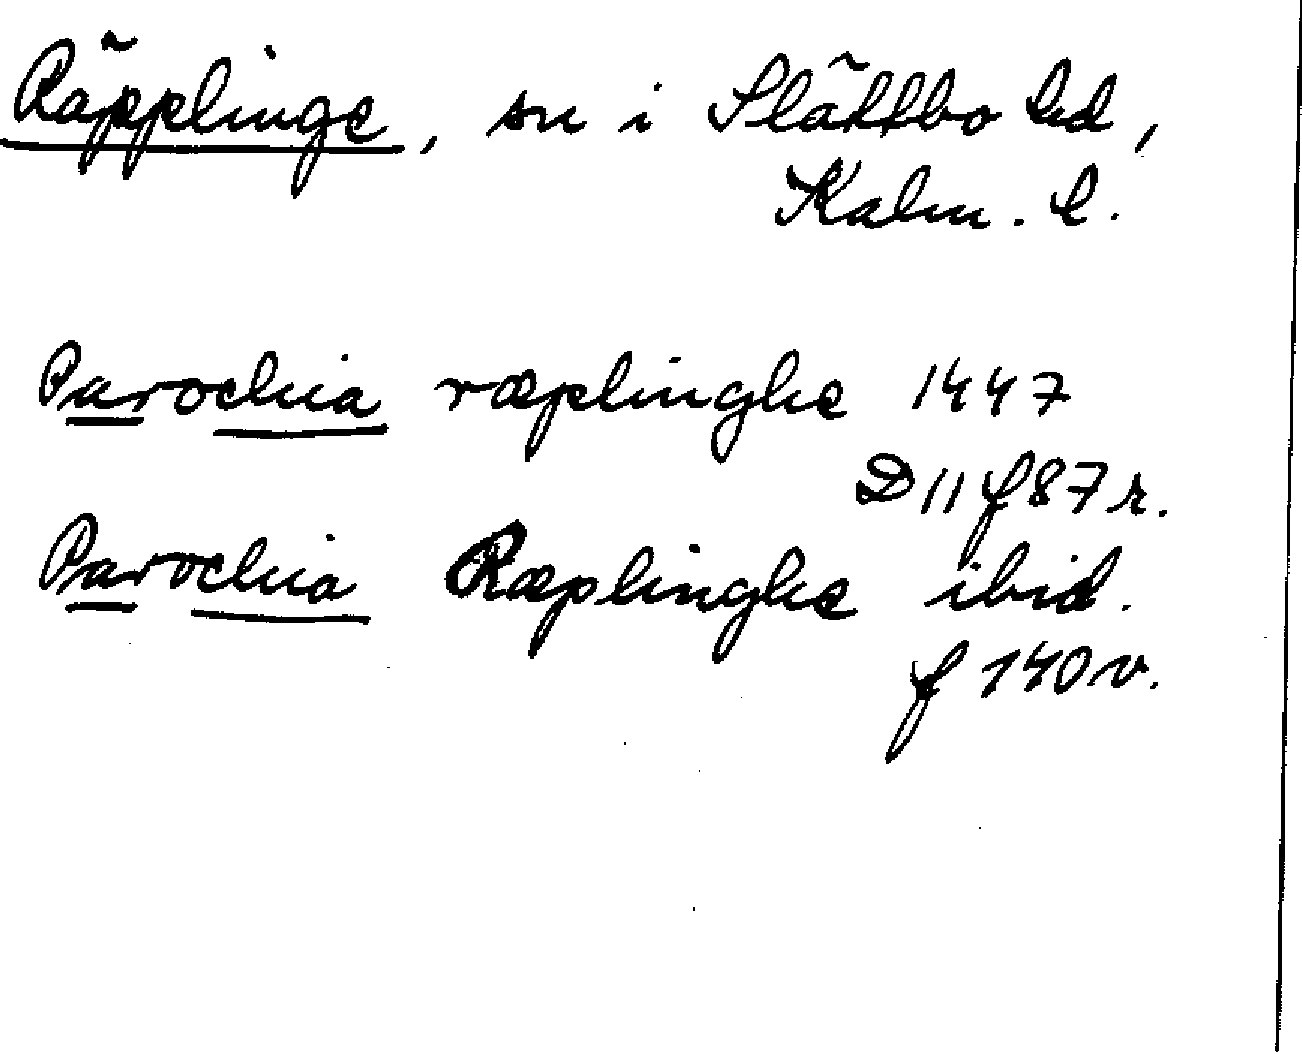 Räpplinge, sn i Slättbo hd,
Kalm. l.
Parochia ræplinghe 1447
D 11 f 87 r.
Parochia Ræplinghe ibid.
f 140 v.